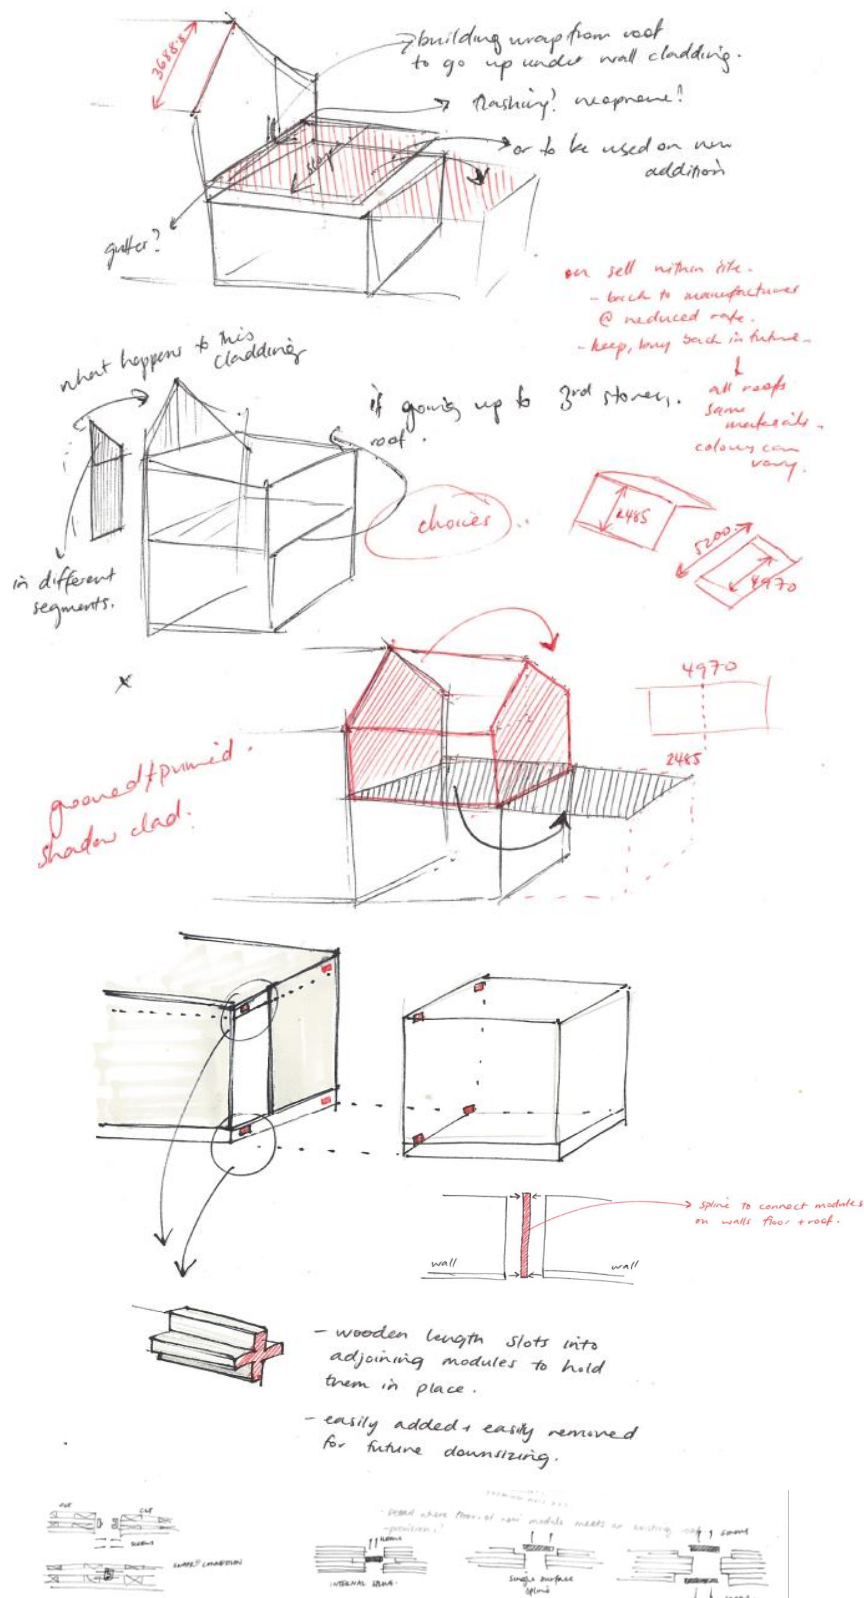 building wrap from roof
to go up under wall cladding.
3688.8
flashing? neoprene?
or to be used on new
addition
slope
gutter?
or sell within site.
- back to manufacturer
@ reduced rate.
- keep, buy back in future.
all roofs
same
materials.
colours can
vary.
what happens to this
cladding
if going up to 3rd storey.
roof.
choices ..
2485
5200
4970
in different
segments.
x
4970
2485
grooved + primed.
shadow clad.
spline to connect modules
on walls floor + roof.
wall
wall
- wooden length slots into
adjoining modules to hold
them in place.
- easily added + easily removed
for future downsizing.
CLT
CLT
SCREWS
SCREWS
INTERNAL SPLINE.
single surface
spline